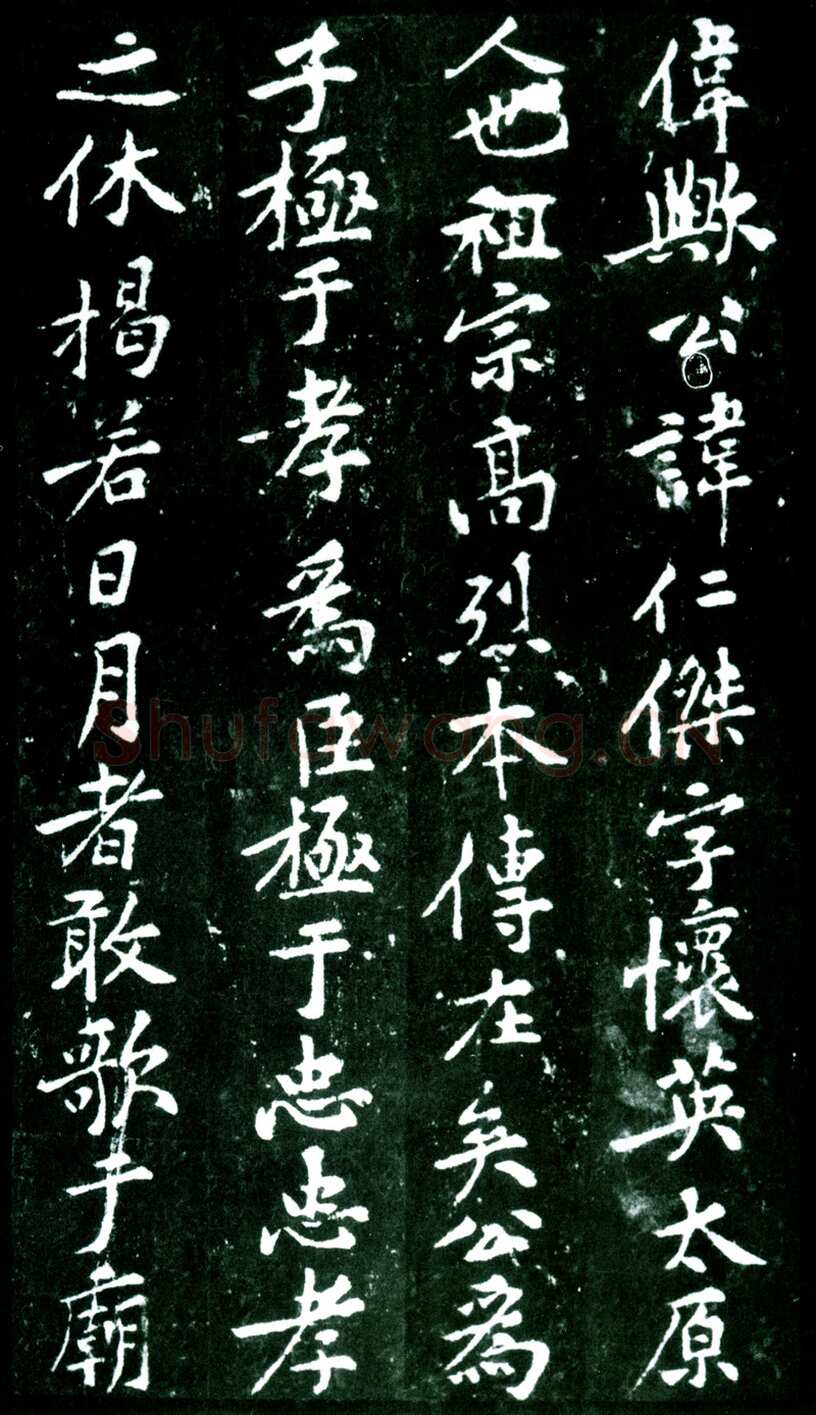 偉歟公諱仁傑字懷英太原
人也祖宗高烈本傳在矣公為
子極于孝為臣極于忠忠孝
之休揭若日月者敢歌于廟
Shufawang.CN